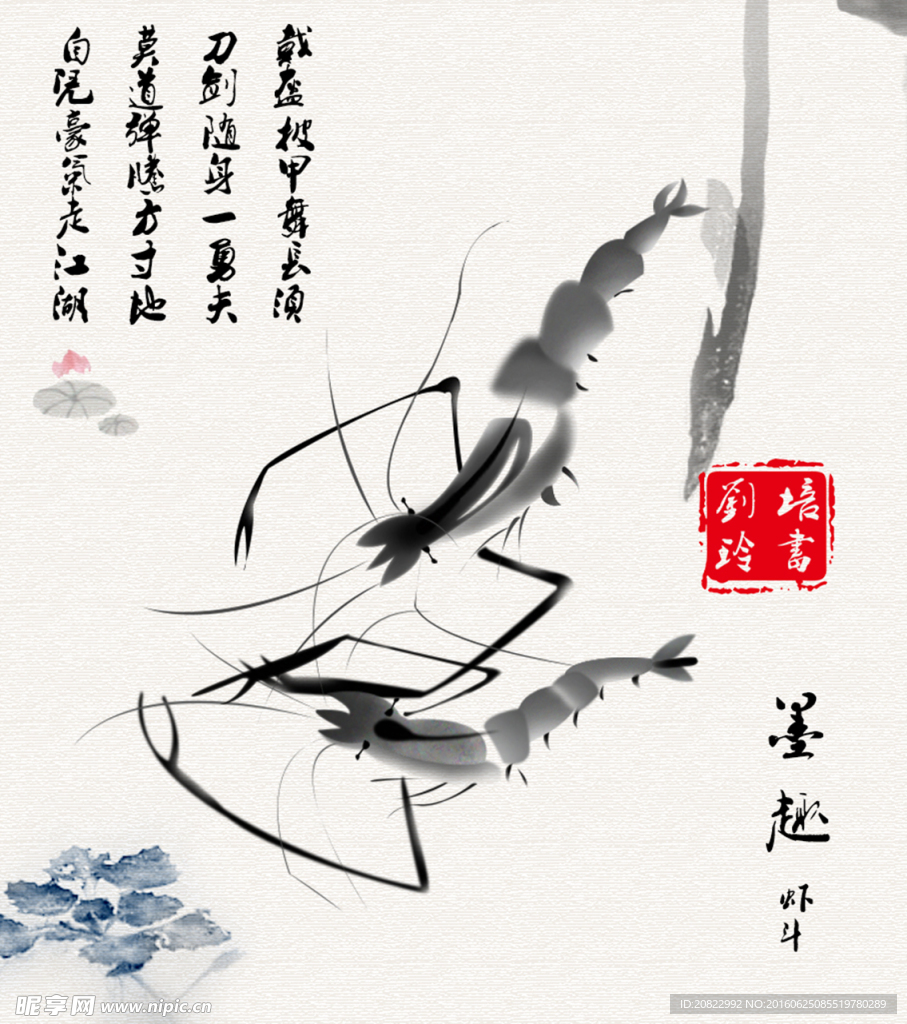 戴盔披甲舞長須
刀剑随身一勇夫
莫道弹膛方寸地
自凭豪氣走江湖
培書
劉玲
墨趣
虾斗
昵享网 www.nipic.cn
ID:20822992 NO:20160625085519780289